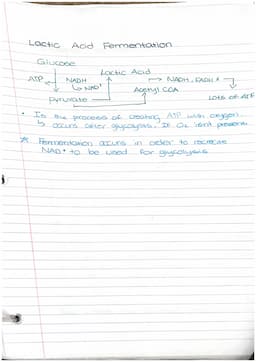 Lactic Acid Fermentation
Glucose
Lactic Acid
ATP NADH → NADH, FADH
NAD+ Acetyl COA
pyruvate Lots of ATP
• Is the process of creating ATP with oxygen.
↳ occurs after glycolysis. If O2 isnt present
* Fermentation occurs in order to recreate
NAD+ to be used for glycolysis